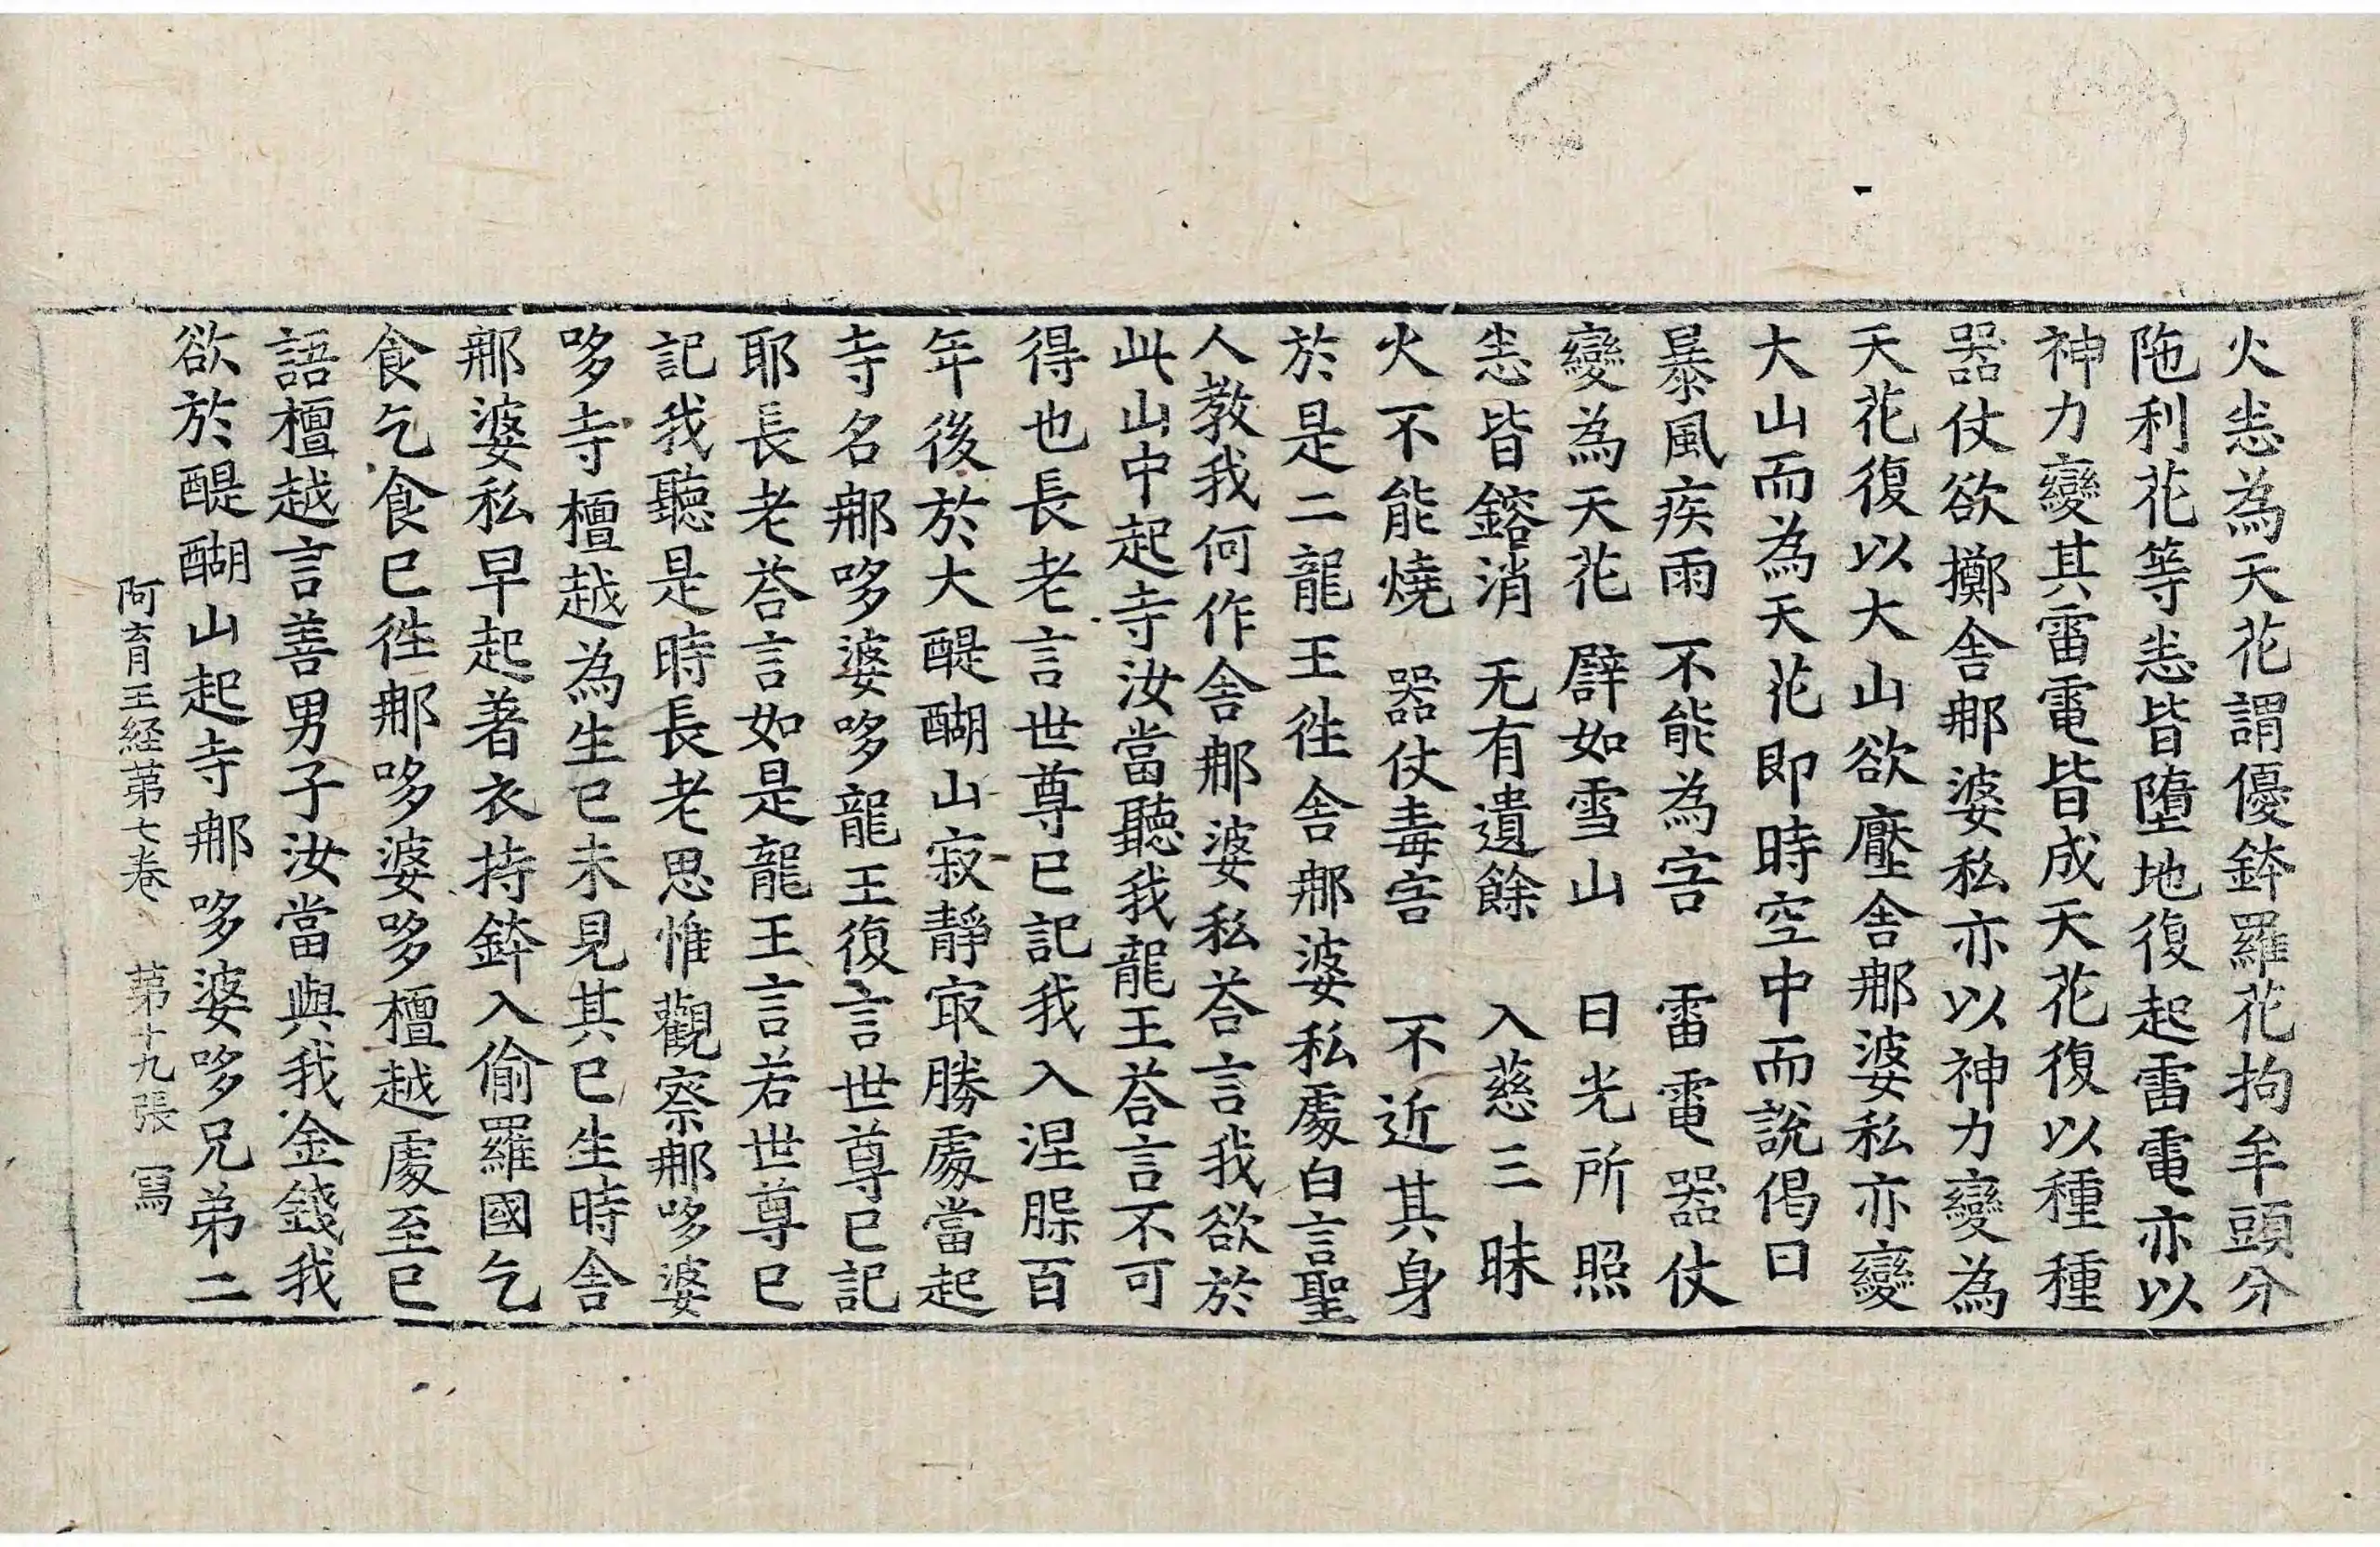 火恙為天花謂優鉢羅花拘牟頭分
陁利花等恙皆墮地復起雷電亦以
神力變其雷電皆成天花復以種種
器仗欲擲舎那婆私亦以神力變為
天花復以大山欲壓舎那婆私亦變
大山而為天花即時空中而說偈曰
暴風疾雨 不能為害 雷電器仗
變為天花 譬如雪山 日光所照
恙皆鎔消 无有遺餘 入慈三昧
火不能燒 器仗毒害 不近其身
於是二龍王徃舎那婆私處白言聖
人教我何作舎那婆私荅言我欲於
此山中起寺汝當聽我龍王荅言不可
得也長老言世尊已記我入涅槃百
年後於大醍醐山寂静㝡勝處當起
寺名那哆婆哆龍王復言世尊已記
耶長老荅言如是龍王言若世尊已
記我聽是時長老思惟觀察那哆婆
哆寺檀越為生已未見其已生時舎
那婆私早起著衣持鉢入偷羅國乞
食乞食已徃那哆婆哆檀越處至已
語檀越言善男子汝當與我金錢我
欲於醍醐山起寺那哆婆哆兄弟二
阿育王経苐七卷 苐十九張 冩